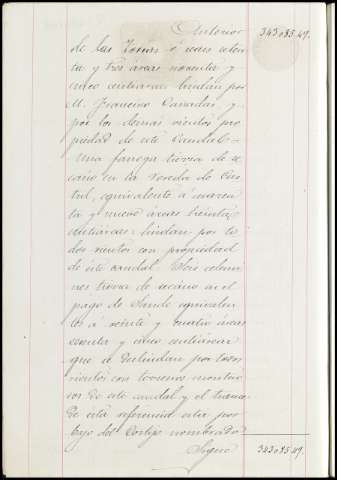 Anterior 343085.49.
de las Tomas ó sean
ta y tres áreas noventa y
cinco centiáreas lindan por
M. Francisco Cañadas, y
por los demás vientos pro
piedad de este Caudal.—
Una fanega tierra de se
cano en la Vereda de
equivalente á cuaren
ta y nueve áreas treinta
centiáreas: lindan por to
dos vientos con propiedad
de este caudal. Seis celemi
nes tierra de secano en el
pago de equivalen
tes á veinte y cuatro áreas
sesenta y cinco centiáreas
que deslindan por todos
vientos con terrenos montuo
sos de este caudal y el tranco
de esta referencia esta por
bajo del Cortijo nombrado
Sigue 343085.49.